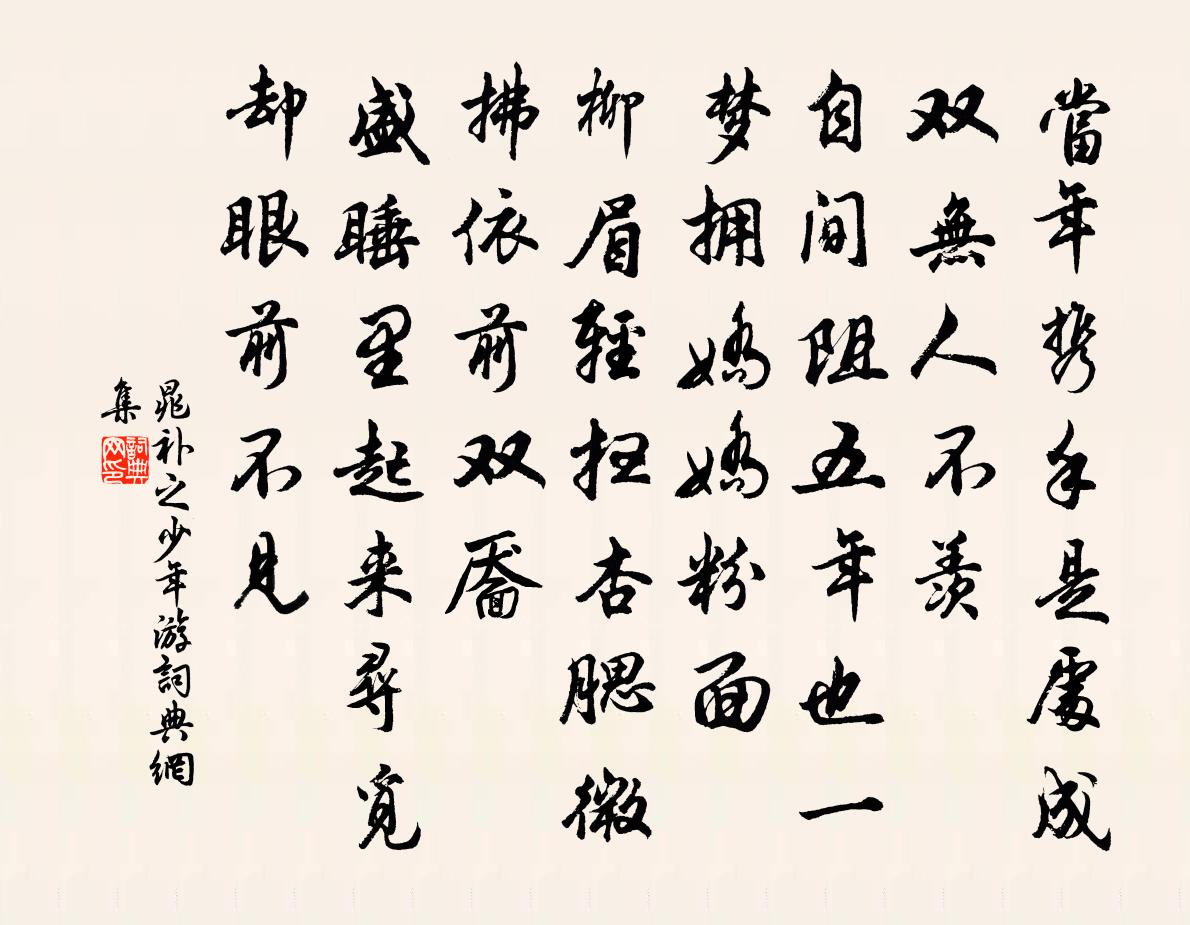 當年携手是處成
双無人不羨
自间阻五年也一
梦拥嬌嬌粉面
柳眉輕扫杏腮微
拂依前双靥
盛睡里起来尋覓
却眼前不見
晁补之少年游詞典網
集
詞典
网印